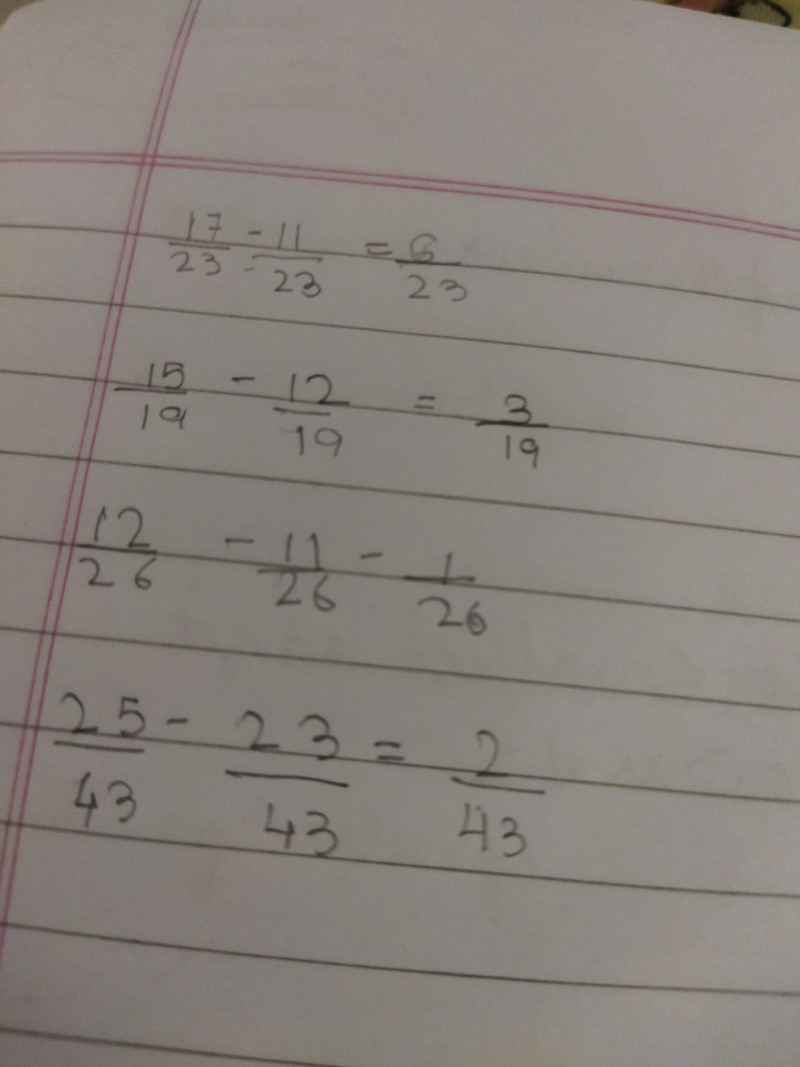 17/23 - 11/23 = 6/23
15/19 - 12/19 = 3/19
12/26 - 11/26 - 1/26
25/43 - 23/43 = 2/43